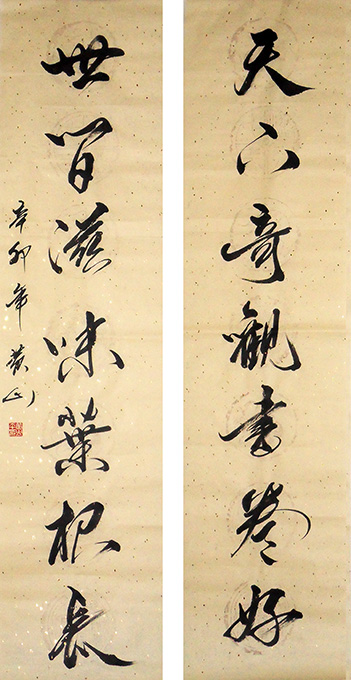 天下奇觀書卷好
世间滋味菜根長
辛卯年